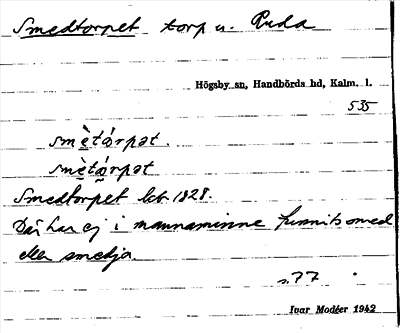 Smedtorpet torp u. Ruda
Högsby sn, Handbörds hd, Kalm. l.
535
smètórpət.
smètórpət
Smedtorpet lcb 1828.
Där har ej i mannaminne funnits smed
eller smedja.
s. 77
Ivar Modéer 1942